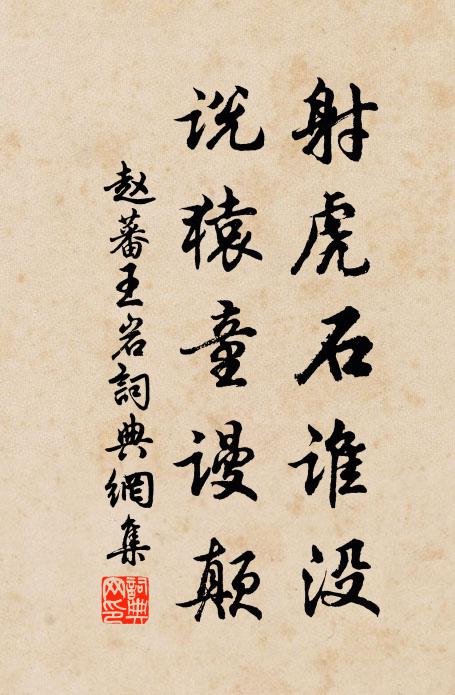 射虎石谁没
说猿童谩颠
赵蕃王岩詞典網集
詞典網印